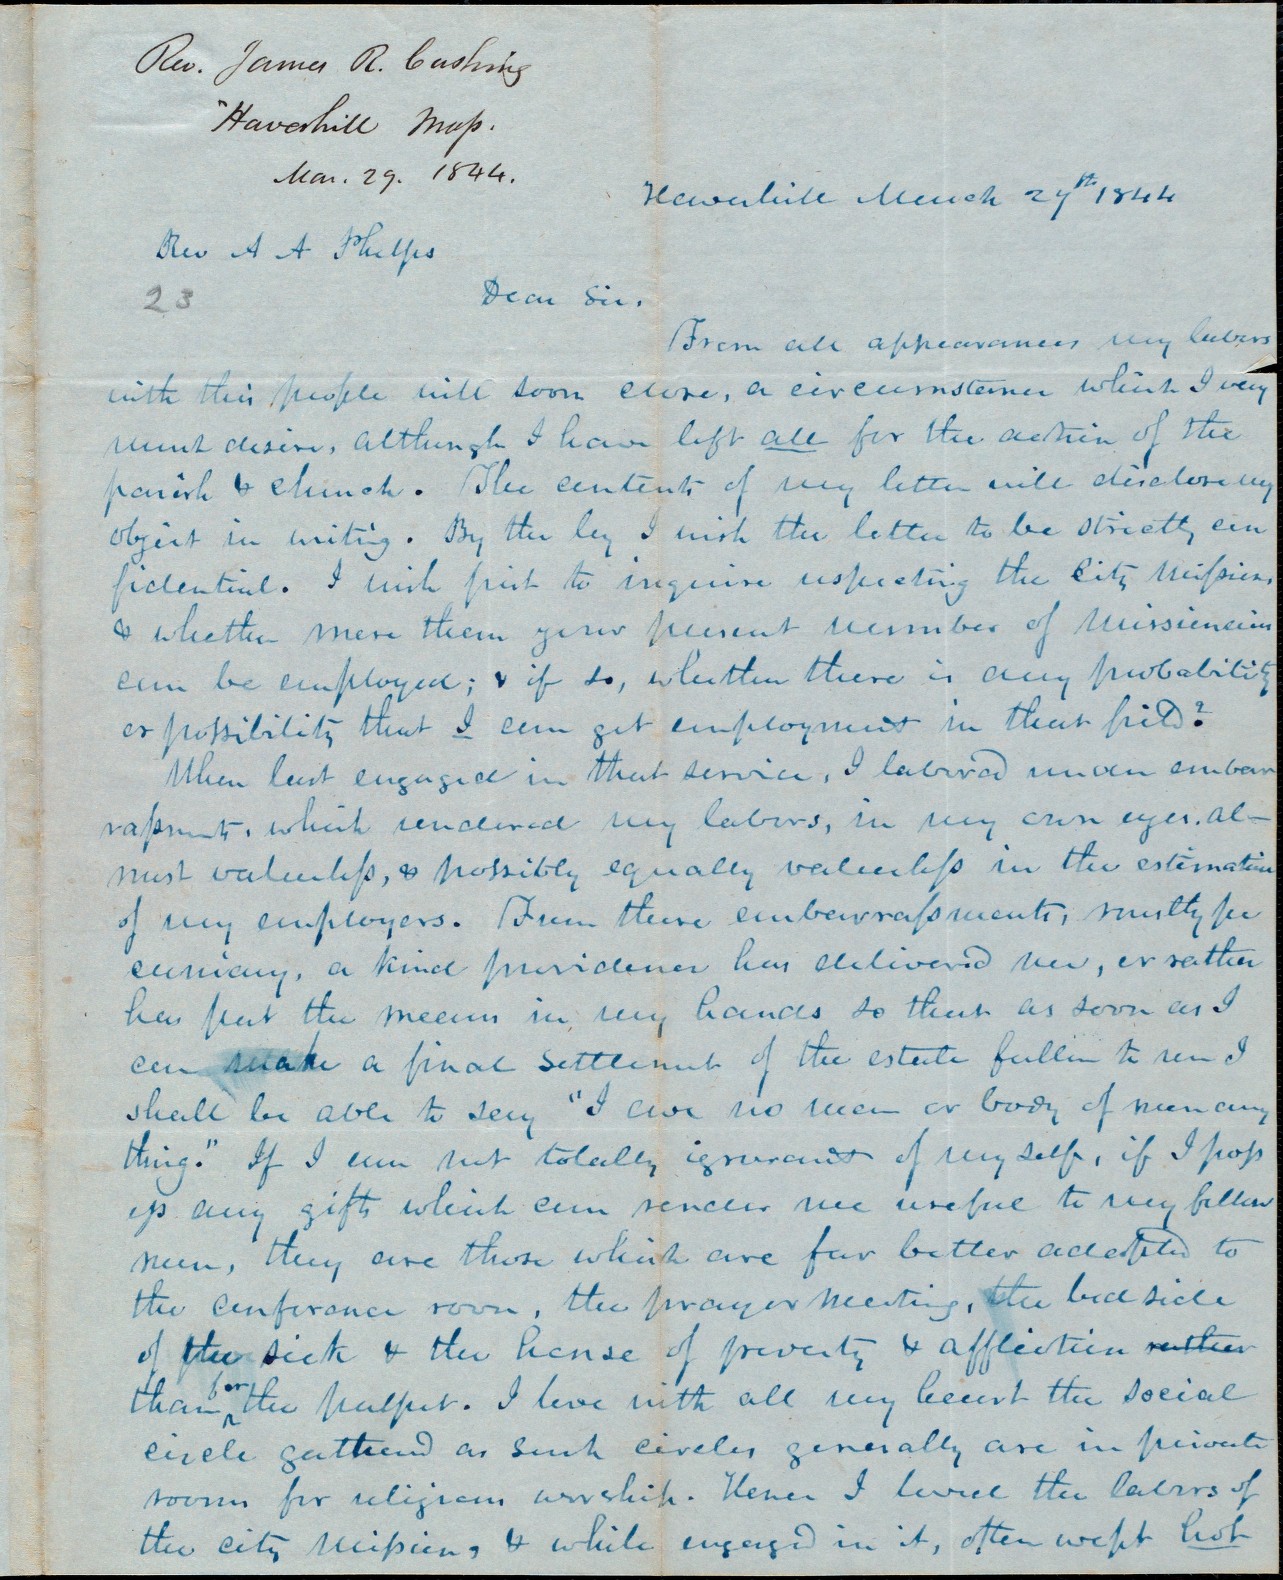 Rev. James R. Cushing
Haverhill Mass.
Mar. 29. 1844.
Haverhill March 29th 1844
Rev A A Phelps
23
Dear Sir.
From all appearances my labors
with this people will soon close, a circumstance which I very
much desire, although I have left all for the action of the
parish & church. The contents of my letter will disclose my
object in writing. By the by I wish the letter to be strictly con
fidential. I wish first to inquire respecting the City Mission,
& whether more than your present number of missionaries
can be employed; & if so, whether there is any probability
or possibility that I can get employment in that field?
When last engaged in that service, I labored under embar
rassments, which rendered my labors, in my own eyes, al-
most valueless, & possibly equally valueless in the estimation
of my employers. From these embarrassments, mostly pe
cuniary, a kind providence has delivered me, or rather
has put the means in my hands so that as soon as I
can make a final settlement of the estate fallen to me I
shall be able to say "I owe no man or body of men any
thing." If I am not totally ignorant of myself, if I poss
ess any gifts which can render me useful to my fellow
men, they are those which are far better adapted to
the conference room, the prayer meeting, the bed side
of the sick & the house of poverty & affliction rather
than for the pulpit. I love with all my heart the social
circle gathered as such circles generally are in private
rooms for religious worship. Hence I loved the labors of
the city mission, & while engaged in it, often wept hot